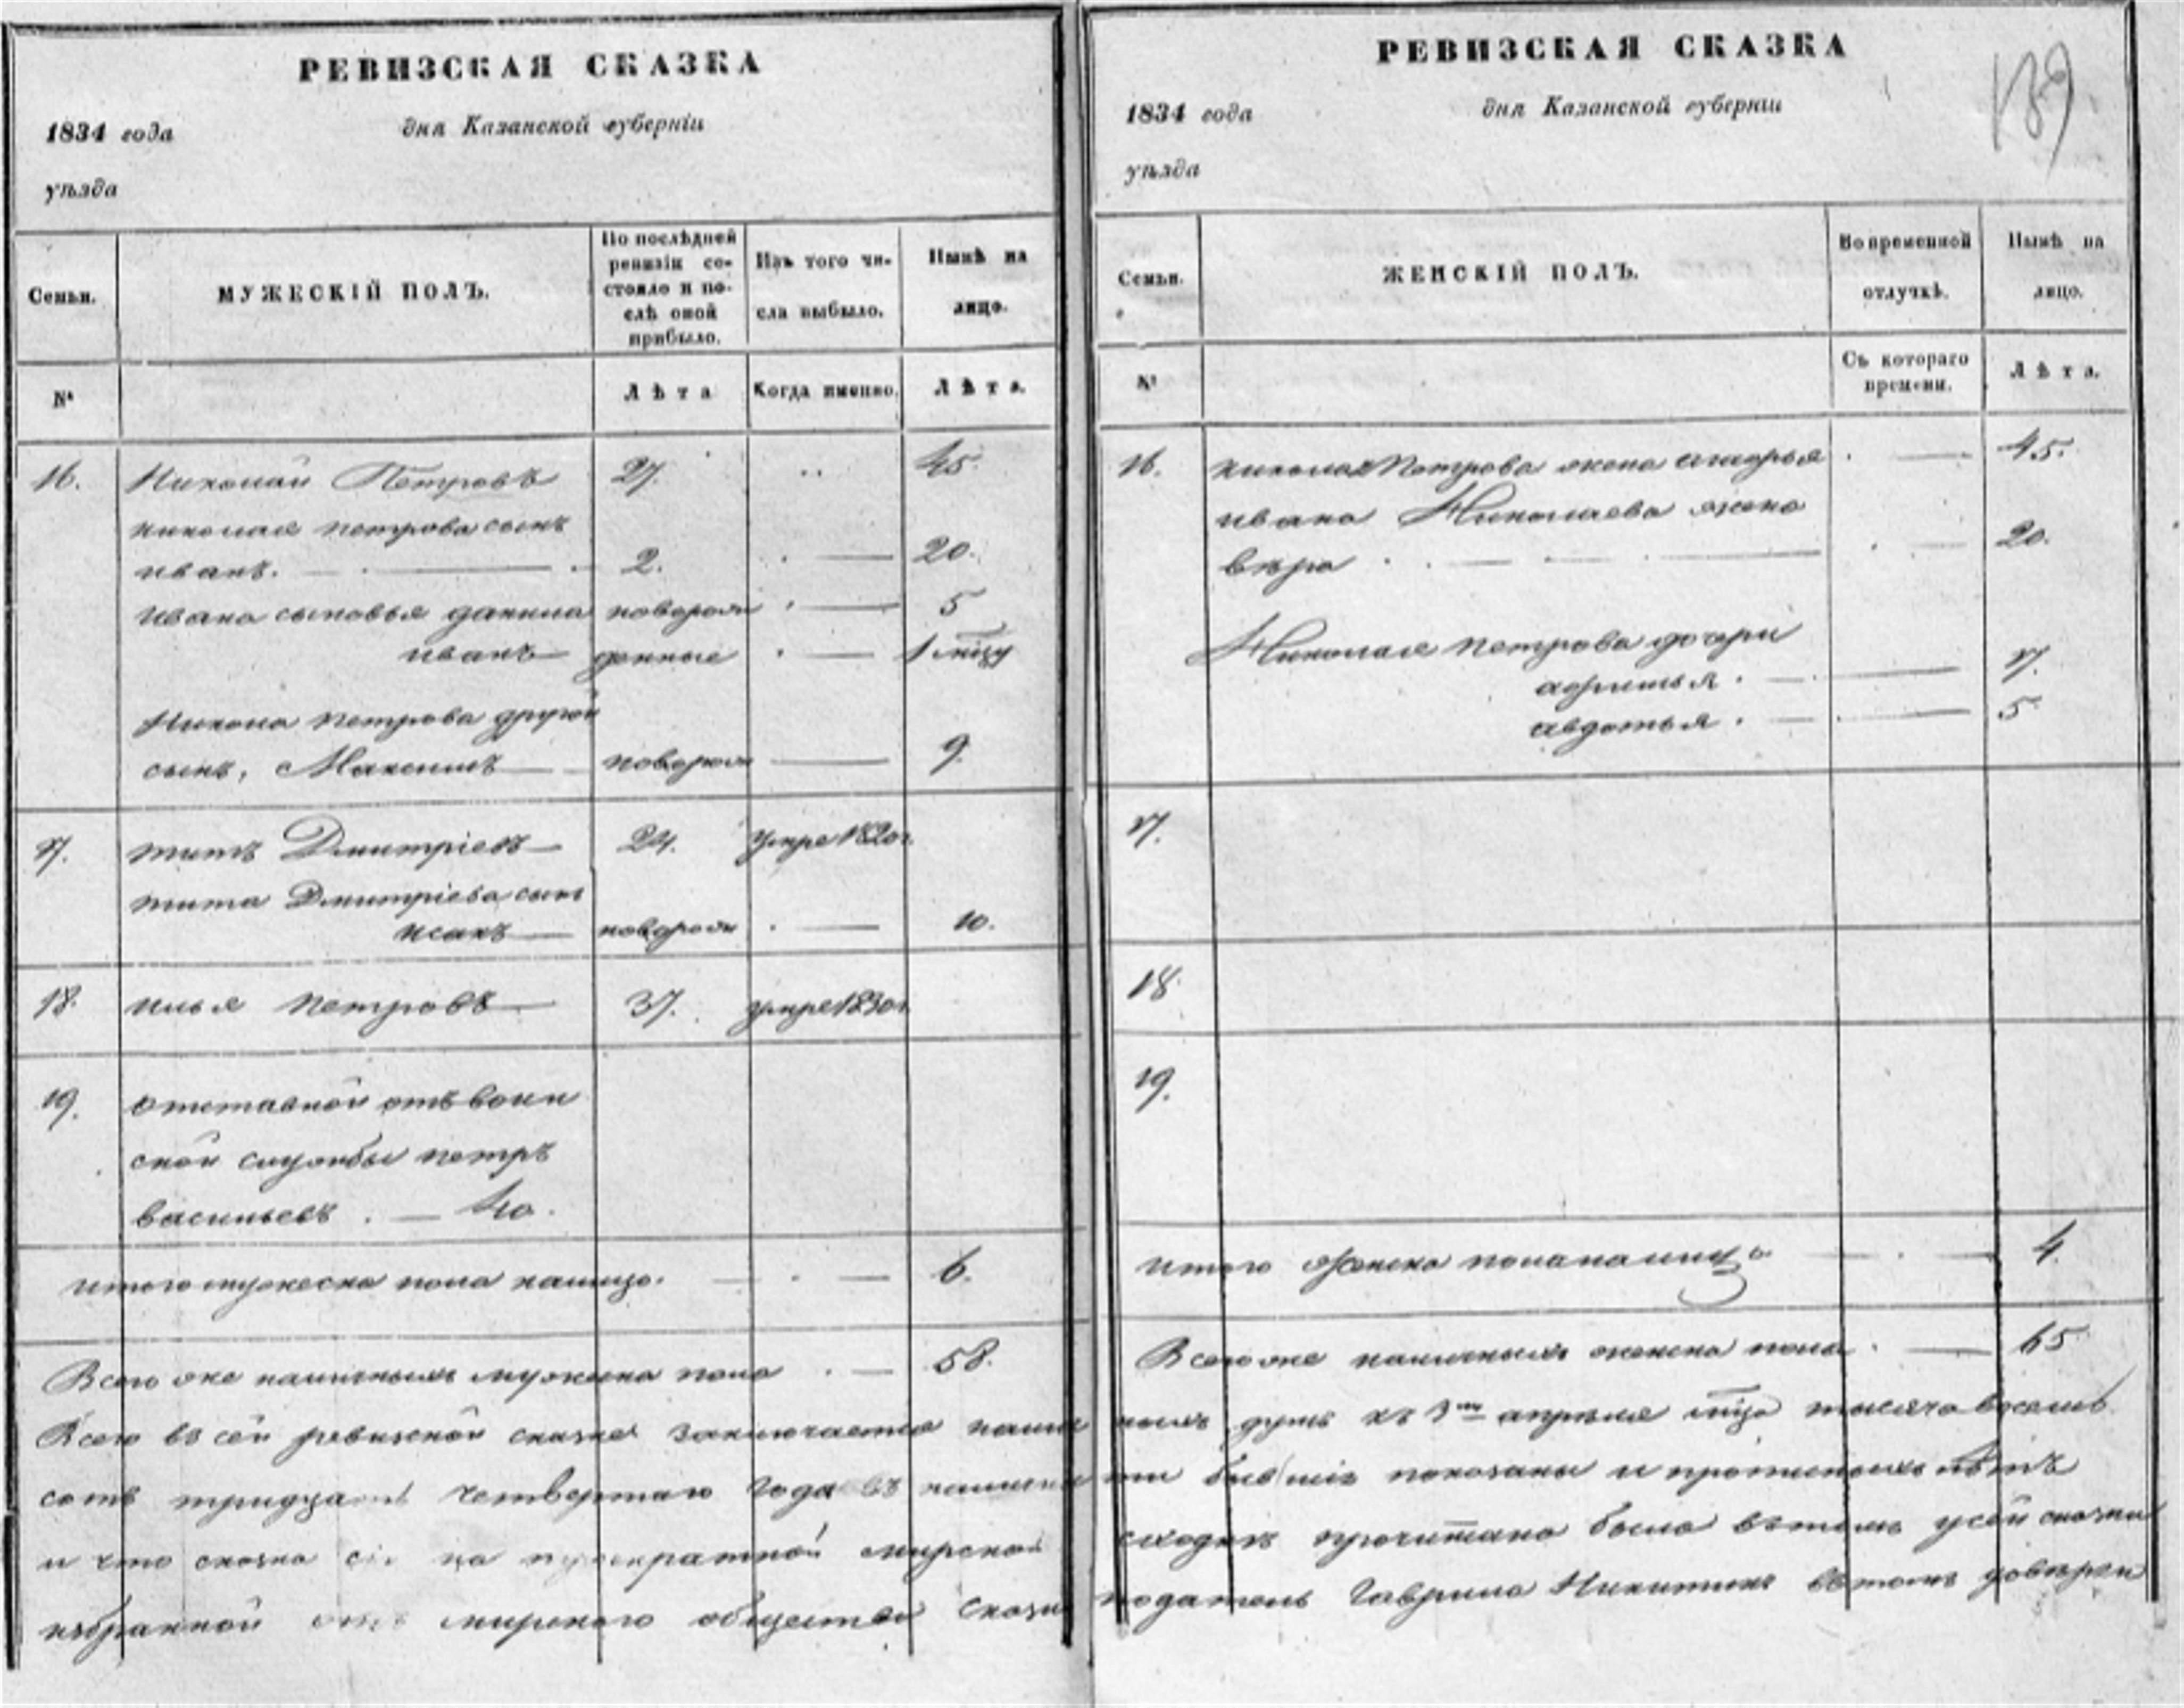 РЕВИЗСКАЯ СКАЗКА
1834 года
дня Казанской губерніи
уѣзда
Семьи.
МУЖЕСКІЙ ПОЛЪ.
По послѣдней ревизіи со-
стояло и по-
слѣ оной
прибыло.
Изъ того чи-
сла выбыло.
Нынѣ на
лицо.
№
Лѣта
Когда именно.
Лѣта.
16. Николай Петровъ 27. 45.
Николая Петрова сынъ
иванъ. 2. 20.
Ивана сыновья данила новорож 5
иванъ денные 1 мцу
Петрова другой
сынъ, Максимъ новорож 9.
17. титъ Дмитріевъ 24. умре 1820г.
тита Дмитріева сынъ
исакъ новорож 10.
18. илья петровъ 37. умре 1830г.
19. отставной отъ воин
ской службы петръ
васильевъ . — 40.
итого мужеска пола налицо. 6.
Всего же наличныхъ мужеска пола 58.
Всего въ сей ревизской сказке заключается налич
сотъ тридцать четвертаго года въ
и что сказка мирской
избранной отъ мирского общества сказко
РЕВИЗСКАЯ СКАЗКА
139
1834 года
дня Казанской губерніи
уѣзда
Семьи.
ЖЕНСКІЙ ПОЛЪ.
Во временной
отлучкѣ.
Нынѣ на
лицо.
№
Съ котораго
времени.
Лѣта.
16. николая Петрова жена 45.
ивана Николаева жена
вѣра 20.
Николая петрова дочери
7.
авдотья. 5
17.
18.
19.
итого женска пола налицо 4.
Всего же наличныхъ женска пола 65
ныхъ душъ къ апрѣля мца тысяча восемь
показаны и нѣтъ
сходкѣ прочитана была въ томъ у сей сказки
податель Гаврила Никитинъ въ томъ